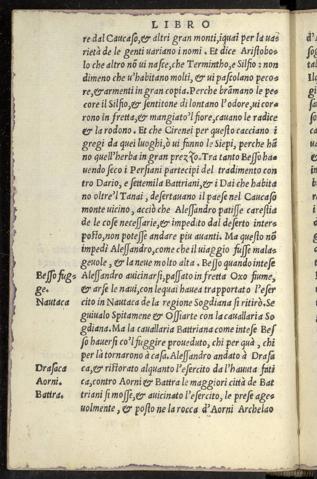 LIBRO
re dal Caucaso, & altri gran monti, i quai per la ua=
rietà de le genti uariano i nomi. Et dice Aristobo=
lo che altro nõ ui nasce, che Termintho, e Silfio: non
dimeno che u'habitano molti, & ui pascolano peco=
re, & armenti in gran copia. Perche brãmano le pe=
core il Silfio, & sentitone di lontano l'odore, ui cor=
rono in fretta, & mangiato'l fiore, cauano le radice
& la rodono. Et che Cirenei per questo cacciano i
gregi da quei luoghi, ò ui fanno le Siepi, perche hã
no quell'herba in gran prezzo. Tra tanto Besso ha=
uendo seco i Persiani partecipi del tradimento con
tro Dario, e settemila Battriani, & i Dai che habita
no oltre'l Tanai, desertauano il paese nel Caucaso
monte uicino, acciò che Alessandro patisse carestia
de le cose necessarie, & impedito dal deserto inter=
posto, non potesse andare piu auanti. Ma questo nõ
impedì Alessandro, come che il uiaggio fusse mala=
geuole, & la neue molto alta. Besso quando intese
Besso fug= Alessandro auicinarsi, passato in fretta Oxo fiume,
ge. & arse le naui, con lequai haueа trapportato l'eser
Nautaca cito in Nautaca de la regione Sogdiana si ritirò. Se
guiualo Spitamene & Ossiarte con la cauallaria So=
gdiana. Ma la cauallaria Battriana come intese Bes=
so hauersi co'l fuggire proueduto, chi per quà, chi
per là tornarono à casa. Alessandro andato à Drasa
Drasaca ca, & ristorato alquanto l'esercito da l'hauuta fati
Aorni. ca, contro Aorni & Battra le maggiori città de Bat
Battra. triani si mosse, & auicinato l'esercito, le prese age=
uolmente, & posto ne la rocca d'Aorni Archelao